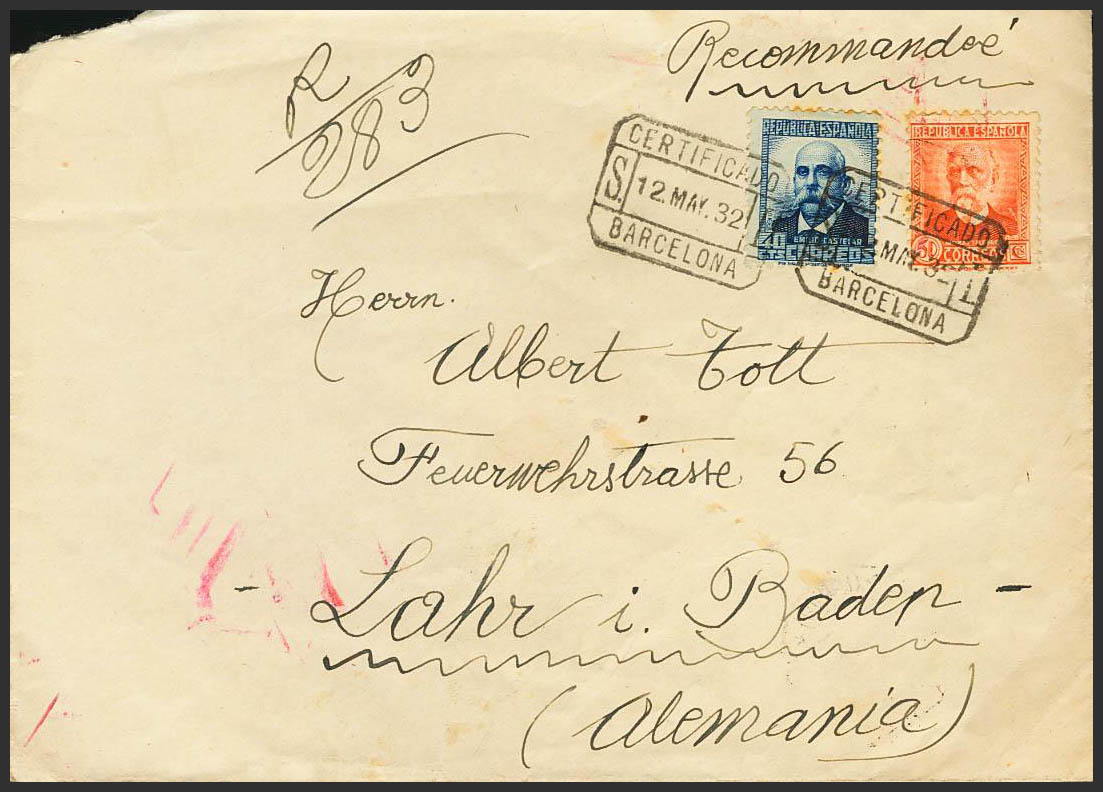 Recommandée
R
283
REPUBLICA ESPAÑOLA
EMILIO CASTELAR
40 CTS CORREOS
REPUBLICA ESPAÑOLA
50 CORREOS CTS
CERTIFICADO
S. 12.MAY.32
BARCELONA
CERTIFICADO
MAY.3
BARCELONA
Herrn.
Albert Tott
Feuerwehrstrasse 56
- Lahr i. Baden -
(Alemania)